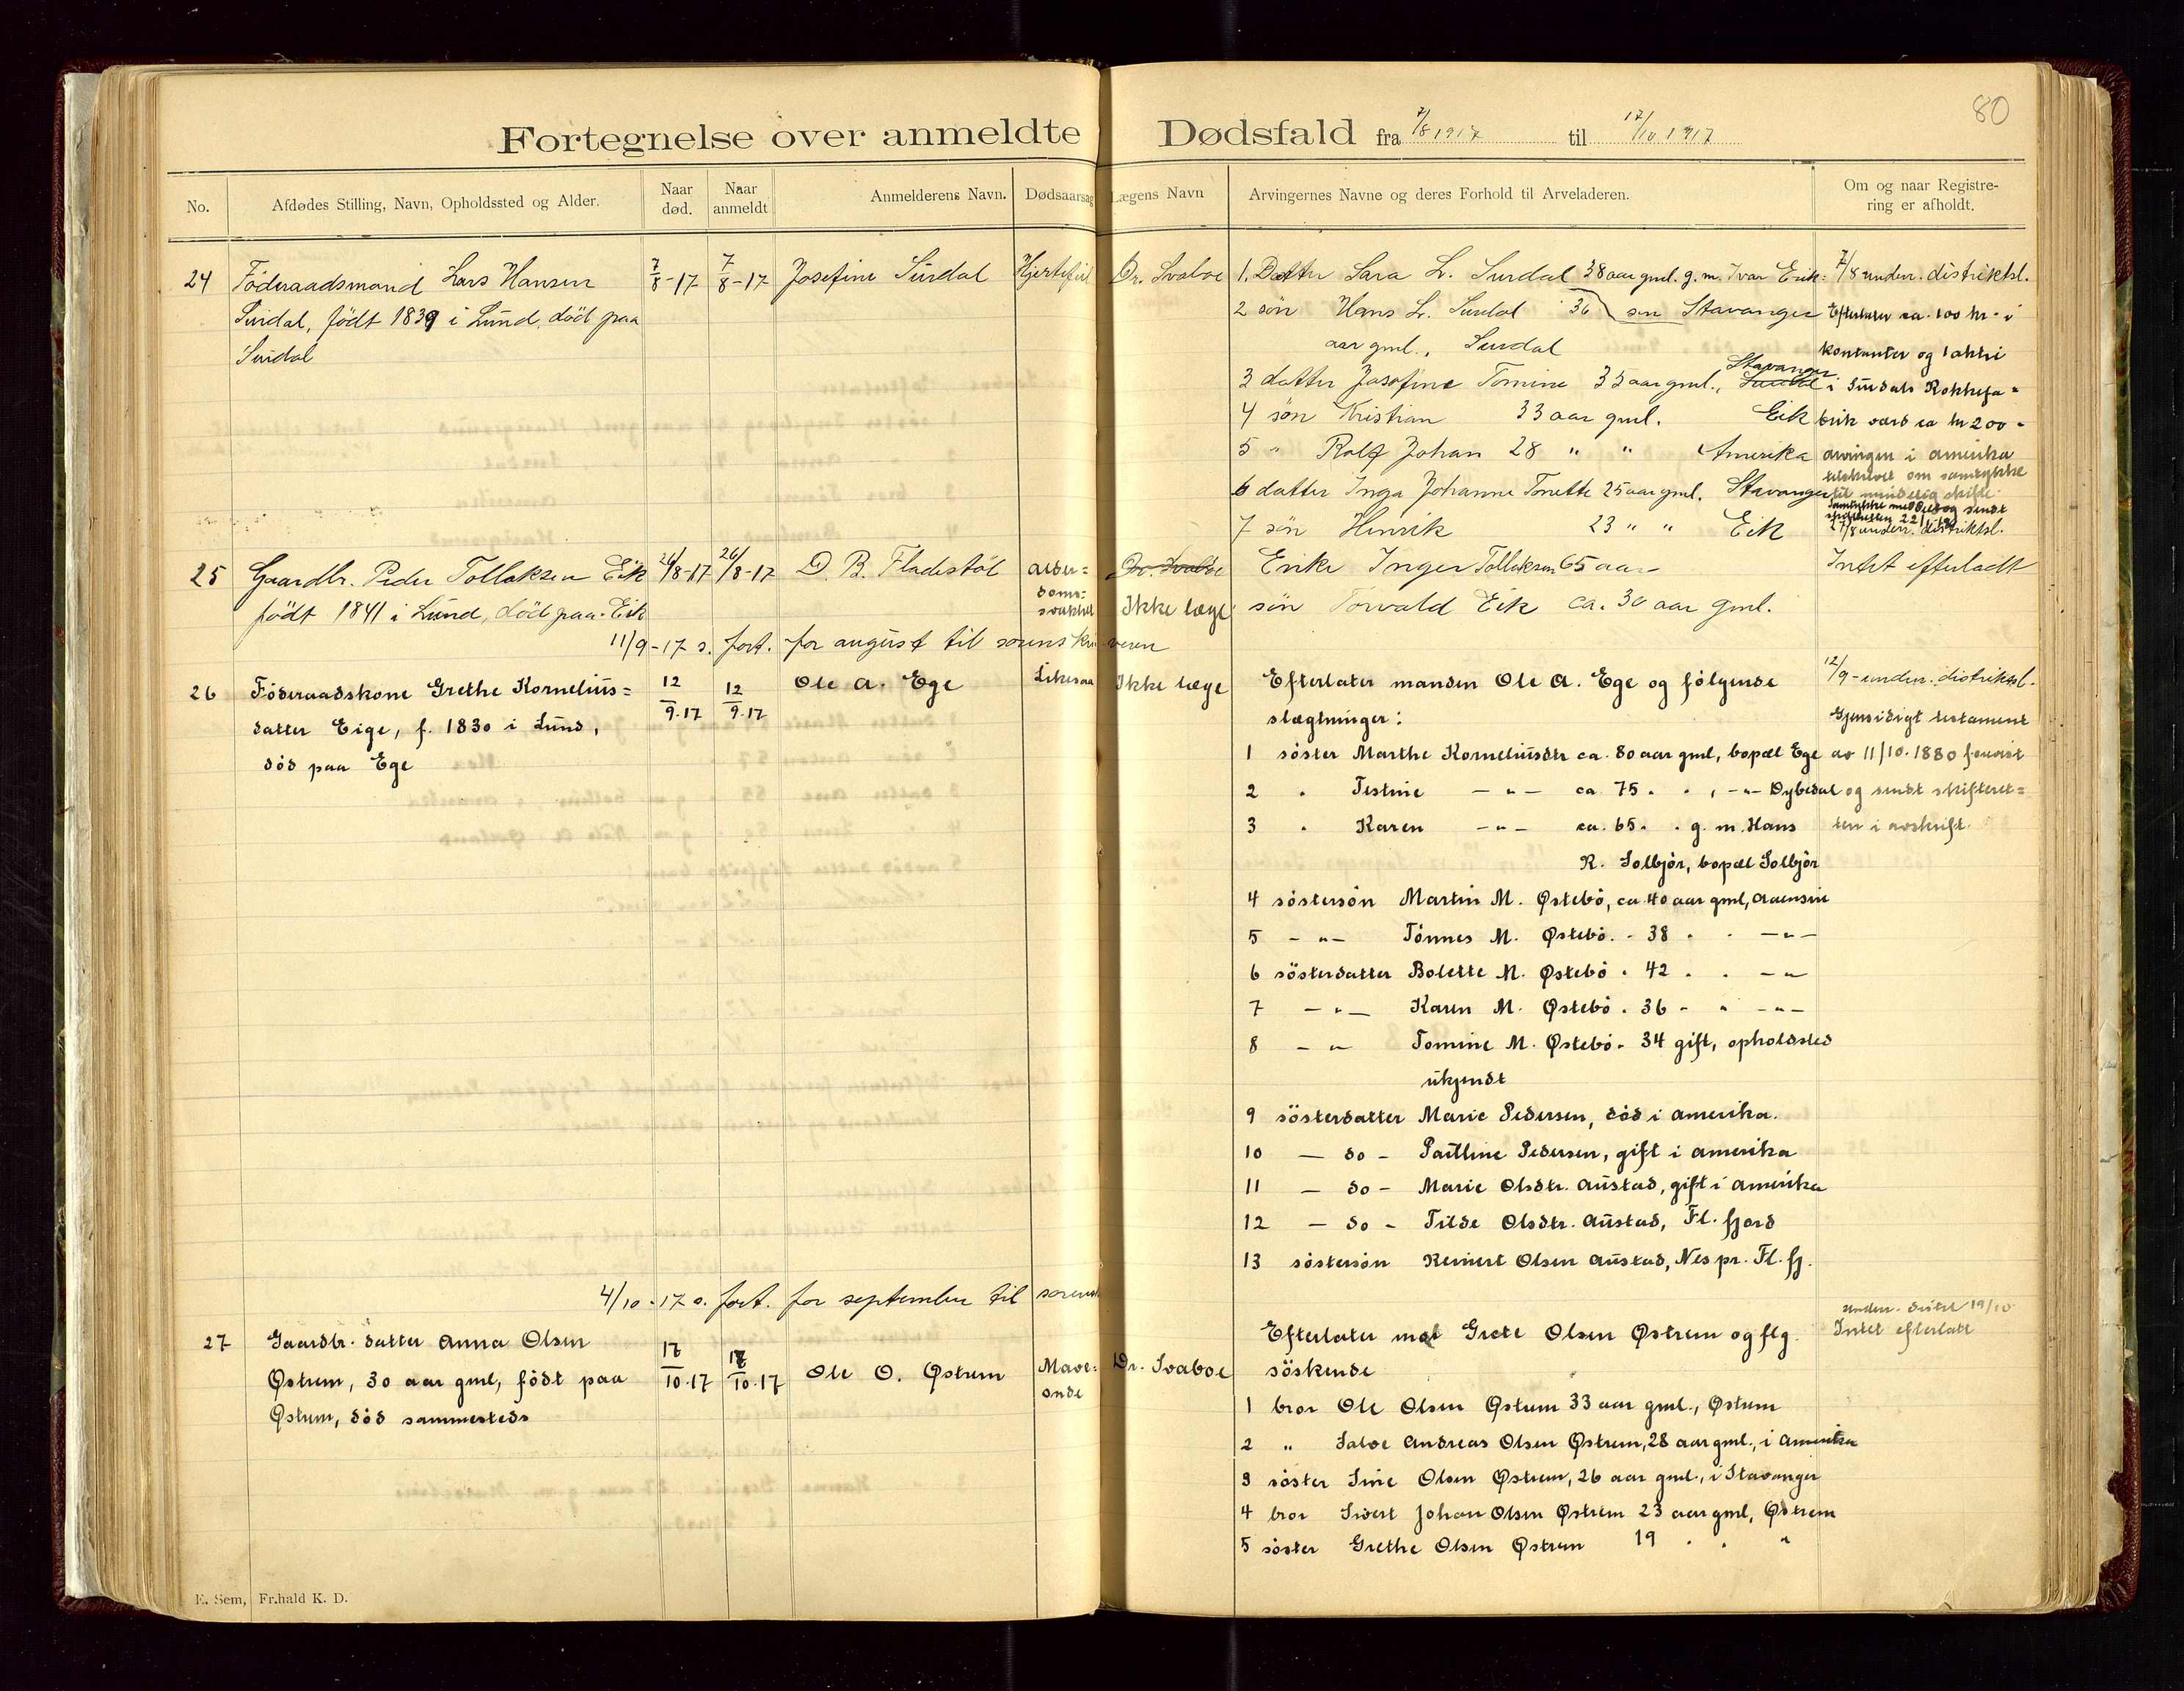 80
Fortegnelse over anmeldte Dødsfald fra 7/8 1917 til 17/10 1917
No.
Afdødes Stilling, Navn, Opholdssted og Alder.
Naar død.
Naar anmeldt
Anmelderens Navn.
Dødsaarsag
Lægens Navn
Arvingernes Navne og deres Forhold til Arveladeren.
Om og naar Registre-
ring er afholdt.
24 Föderaadsmand Lars Hansen 7/8-17 7/8-17 Josefine Surdal Hjertefeil Dr. Svaboe
Surdal, født 1839 i Lund, död paa
Surdal
1. Datter Sara L. Surdal 38 aar gml. g. m. Ivar Eik.
2 sön Hans L. Surdal 36 Stavanger
aar gml., Surdal
3 datter Josefine Tomine 35 aar gml., Surdal Stavanger
4 sön Kristian 33 aar gml. Eik
5 " Rolf Johan 28 " " Amerika
6 datter Inga Johanne Tonette 25 aar gml. Stavanger
7 sön Henrik 23 " " Eik
7/8 under. distriktsl.
Efterlater ca. 100 kr. i
kontanter og 1 aktie
i Surdals Rokkefa-
brik værd ca kr 200-
arvingen i amerika
tilskrevet om samtykke
til mindelig skifte.
27/8 under. distriktsl.
25 Gaardbr. Peder Tollaksen Eik 26/8-17 26/8-17 D. B. Fladstöl alder=
doms-
svakhet Dr. Svaboe
Ikke læge
født 1841 i Lund, död paa Eik
Enke Inger Tollaksen 65 aar-
sön Torvald Eik ca. 30 aar gml.
Intet efterladt
11/9-17 s. fort. for august til sorenskriveren
26 Föderaadskone Grethe Kornelius= 12/9.17 12/9.17 Ole A. Ege Likesaa Ikke læge
datter Eige, f. 1830 i Lund,
död paa Ege
Efterlater manden Ole A. Ege og fölgende
slægtninger:
1 söster Marthe Korneliusdtr ca. 80 aar gml, bopæl Ege
2 . Testine - " - ca 75 . . , - " - Dybedal
3 . Karen - " - ca. 65 . . g. m. Hans
R. Solbjör, bopæl Solbjör
4 söstersön Martin M. Østebö, ca 40 aar gml, Aaensire
5 - " - Tönnes M. Østebö. - 38 . . - " -
6 sösterdatter Bolette M. Østebö . 42 . . - " -
7 - " - Karen M. Østebö . 36 - . - " -
8 - " - Tomine M. Østebö . 34 gift, opholdsted
ukjendt
9 sösterdatter Marie Pedersen, död i amerika.
10 - do - Pauline Pedersen, gift i amerika
11 - do - Marie Olsdtr. Austad, gift i amerika
12 - do - Tilde Olsdtr. Austad, Fl. fjord
13 söstersön Reinert Olsen Austad, Nes pr. Fl. fj.
12/9 - under. distriktsl.
Gjensidigt testament
av 11/10. 1880 forevist
og sendt skifteret=
ten i avskrift.
4/10-17 s. fort. for september til sorensk
27 Gaardbr. datter Anna Olsen 17/10.17 18/10.17 Ole O. Østrem Mave-
onde Dr. Svaboe
Østrem, 30 aar gml, födt paa
Østrem, död sammesteds
Efterlater mor Grete Olsen Østrem og flg.
söskende
1 bror Ole Olsen Østrem 33 aar gml., Østrem
2 " Salve Andreas Olsen Østrem, 28 aar gml., i Amerika
3 söster Sine Olsen Østrem, 26 aar gml., i Stavanger
4 bror Sivert Johan Olsen Østrem 23 aar gml, Østrem
5 söster Grethe Olsen Østrem 19 . . "
under. distrl 19/10
Intet efterlatt
E. Sem, Fr.hald K. D.